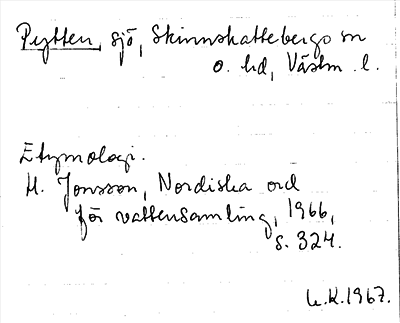 Pytten, sjö, Skinnskattebergs sn
o. hd, Västm. l.
Etymologi.
H. Jonsson, Nordiska ord
för vattensamling, 1966,
s. 324.
U.K.1967.